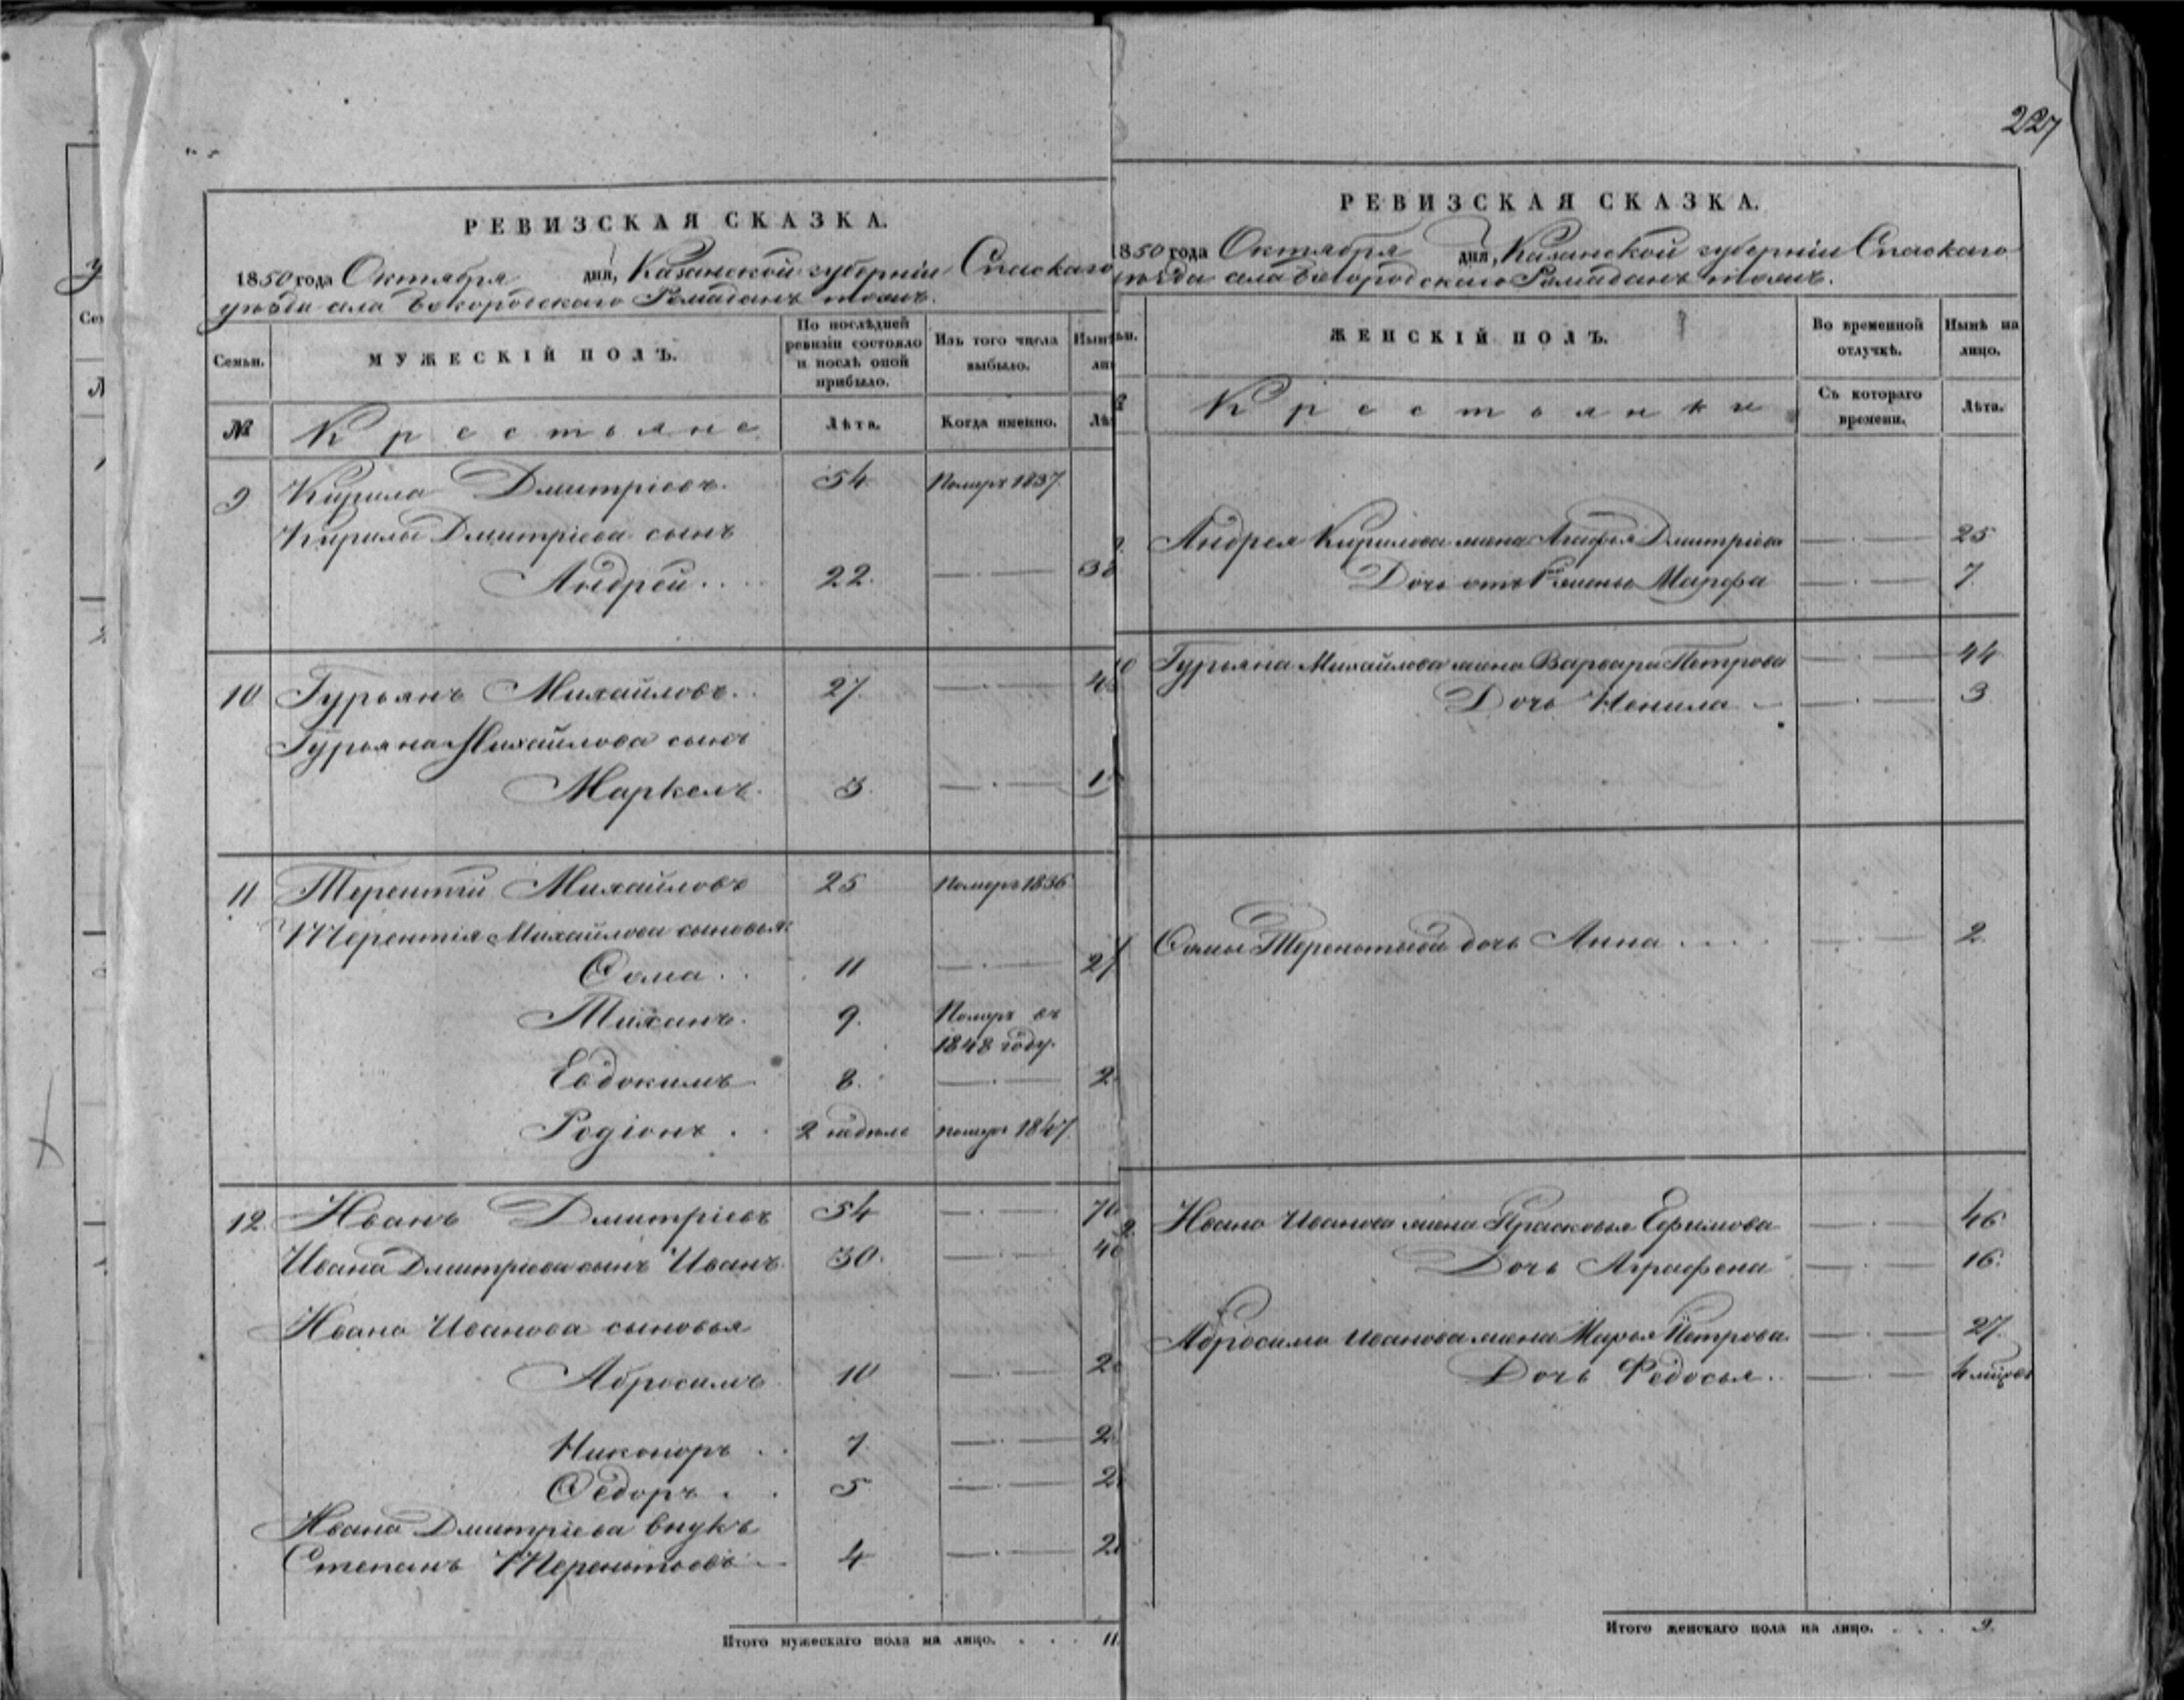 227
РЕВИЗСКАЯ СКАЗКА.
1850 года Октября дня, Казанской губернiи Спаскаго
уѣзда села Богородскаго Ромаданъ тожъ.
Семьи.
МУЖЕСКIЙ ПОЛЪ.
По послѣдней ревизiи состояло и послѣ оной прибыло.
Изъ того числа выбыло.
№
Крестьяне
Лѣта.
Когда именно.
9 Кирила Дмитрiевъ. 54 Померъ 1837.
Кирилы Дмитрiева сынъ
Андрей 22.
10 Гурьянъ Михайловъ. 27.
Гурьяна Михайлова сынъ
Маркелъ. 3.
11 Терентiй Михайловъ 25 Померъ 1836
Терентiя Михайлова сыновья:
Ѳома 11
Тиханъ. 9. Померъ въ
1848 году.
Евдокимъ 8.
Родiонъ 2 недѣли померъ 1847.
12 Иванъ Дмитрiевъ 54
Ивана Дмитрiева сынъ Иванъ 30.
Ивана Иванова сыновья
Абросимъ 10
Никоноръ 7
Ѳедоръ 5
Ивана Дмитрiева внукъ
Степанъ Терентьевъ 4
Итого мужескаго пола на лицо. 11.
РЕВИЗСКАЯ СКАЗКА.
1850 года Октября дня, Казанской губернiи Спаскаго
уѣзда села Богородскаго Ромаданъ тожъ.
ЖЕНСКIЙ ПОЛЪ.
Во временной отлучкѣ.
Нынѣ на лицо.
Крестьянки
Съ котораго времени.
Лѣта.
Андрея Кирилова жена Агафья Дмитрiева 25
Дочь отъ 1 жены Марфа 7
10 Гурьяна Михайлова жена Варвара Петрова 44
Дочь Ненила 3
Ѳомы Терентьева дочь Анна 2
Ивана Иванова жена Прасковья Ефимова 46
Дочь Аграфена 16.
Абросима Иванова жена Марья Петрова 27.
Дочь Федосья.
Итого женскаго пола на лицо. 9.